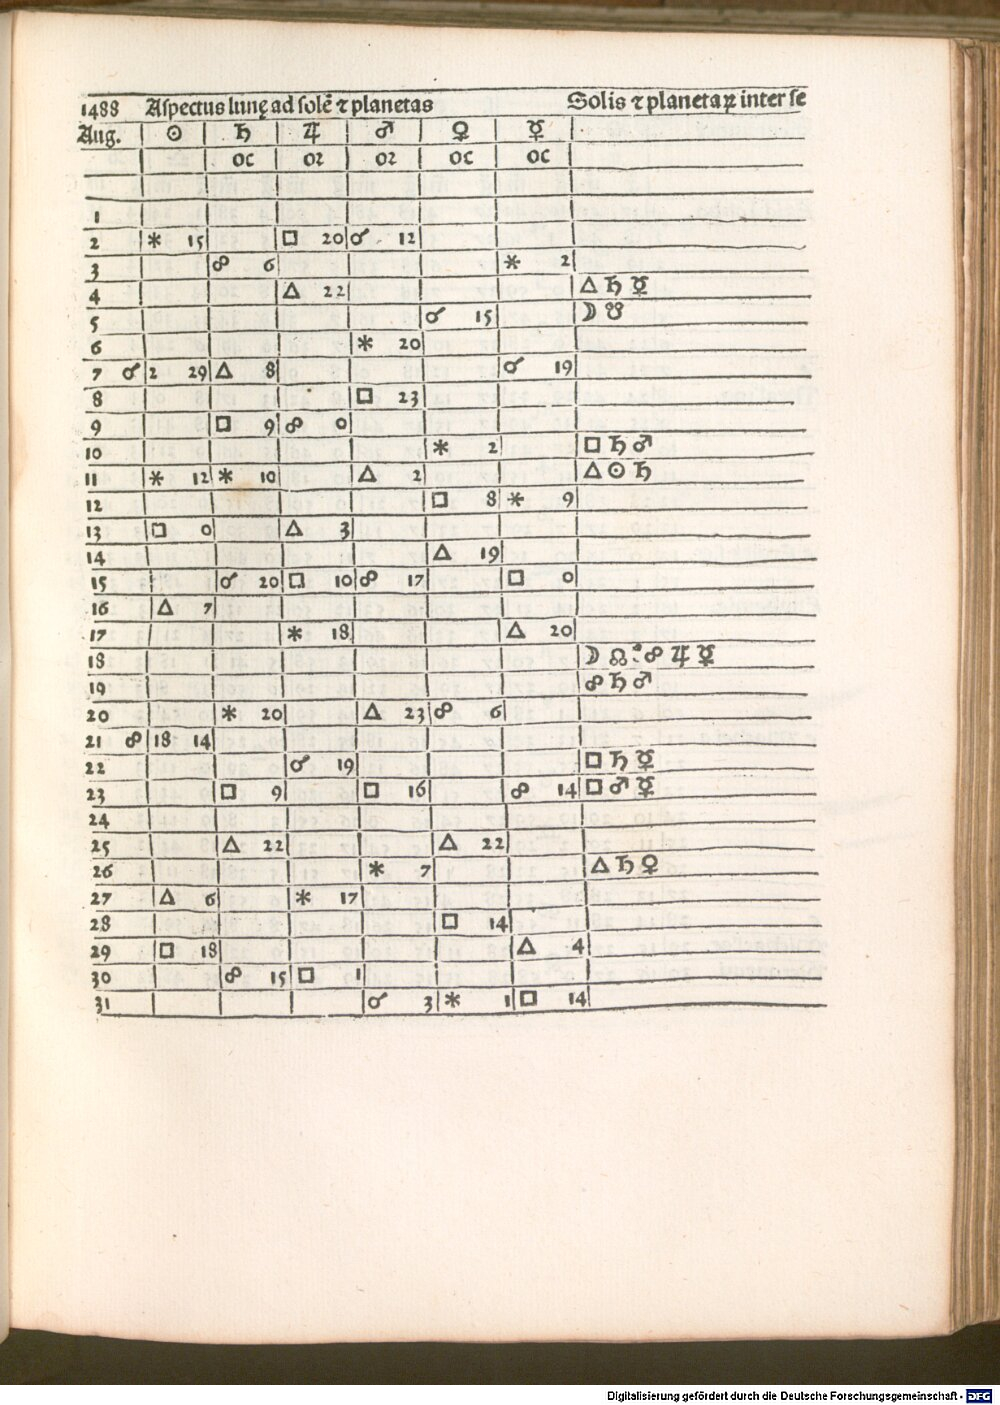 1488 Aspectus lunę ad solē ⁊ planetas Solis ⁊ planetaꝝ inter se
Aug. ☉ ♄ ♃ ♂ ♀ ☿
oc oꝛ oꝛ oc oc
1
2 ⚹ 15 □ 20 ☌ 12
3 ☍ 6 ⚹ 2
4 △ 22 △ ♄ ☿
5 ☌ 15 ☽ ☋
6 ⚹ 20
7 ☌ 2 29 △ 8 ☌ 19
8 □ 23
9 □ 9 ☍ 0
10 ⚹ 2 □ ♄ ♂
11 ⚹ 12 ⚹ 10 △ 2 △ ☉ ♄
12 □ 8 ⚹ 9
13 □ 0 △ 3
14 △ 19
15 ☌ 20 □ 10 ☍ 17 □ 0
16 △ 7
17 ⚹ 18 △ 20
18 ☽ ☊ : ☍ ♃ ☿
19 ☍ ♄ ♂
20 ⚹ 20 △ 23 ☍ 6
21 ☍ 18 14
22 ☌ 19 □ ♄ ☿
23 □ 9 □ 16 ☍ 14 □ ♂ ☿
24
25 △ 22 △ 22
26 ⚹ 7 △ ♄ ♀
27 △ 6 ⚹ 17
28 □ 14
29 □ 18 △ 4
30 ☍ 15 □ 1
31 ☌ 3 ⚹ 1 □ 14
Digitalisierung gefördert durch die Deutsche Forschungsgemeinschaft - DFG